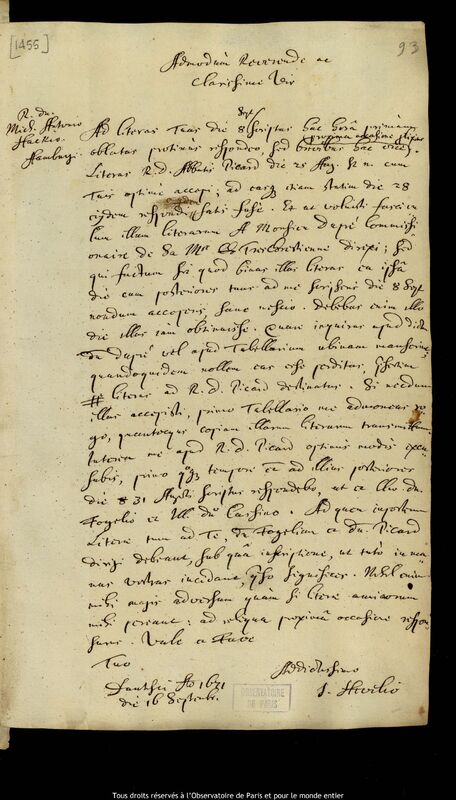 [1455]
93
Admodum Reverende ac
Clarissime Vir
R. dn.
Mich. Antonio
Hackio
Hamburgi.
Sept
Ad literas Tuas die 8 scriptas hac horâ primùm
oblatas protinus respondeo, sed brevibus hac vice.
Literas R. d. Abbatis Picard die 25 Aug. st n. cum
Tuis optimè accepi; ad easq etiam statim die 28
eiusdem respondi satis fusè. Et ac voluisti fascicu
lum illum literarum A Monsieur Dupré Commissi
onaire de Sa Mté Treschrestienne direxi; sed
qui factum sit quod binas illas literas eâ ipsâ
die cum posteriores tuas ad me scripseris die 8 Sept
nondum acceperis, sane nescio. Debebas enim illo
die illas iam obtinuisse. Quare inquiras apud dictum
Dupré vel apud Tabellarium ubinam manserint,
quandoquidem nollem eas esse perditas,
literas ad R. d. Picard destinatas. Si necdum
illas accepisti, primo Tabellario me admoneas ro
go, quo copiam illarum literarum transmittam
Interea me apud R. d. Picard optimis modis excu
sabis, primo tempore et ad illius posteriores
die 31 Augusti scriptas respondebo, ut et Clio. dn.
Fogelio et Ill. dn Cassino. Ad quem inposterum
Literae tum ad Te, dn Fogelium et dn. Picard
dirigi debeant, sub quâ inscriptione, ut tutò in ma
nus vestras incidant, significes. Nihil enim
mihi magis adversum quàm si literae amicorum
mihi pereant: ad reliqua proximâ occasione respon
surus. Vale et Fave
Tuo
Addictissimo
J. Hevelio
Dantisci Ao 1671
die 16 Septemb.
OBSERVATOIRE
DE PARIS
Tous droits réservés à l'Observatoire de Paris et pour le monde entier